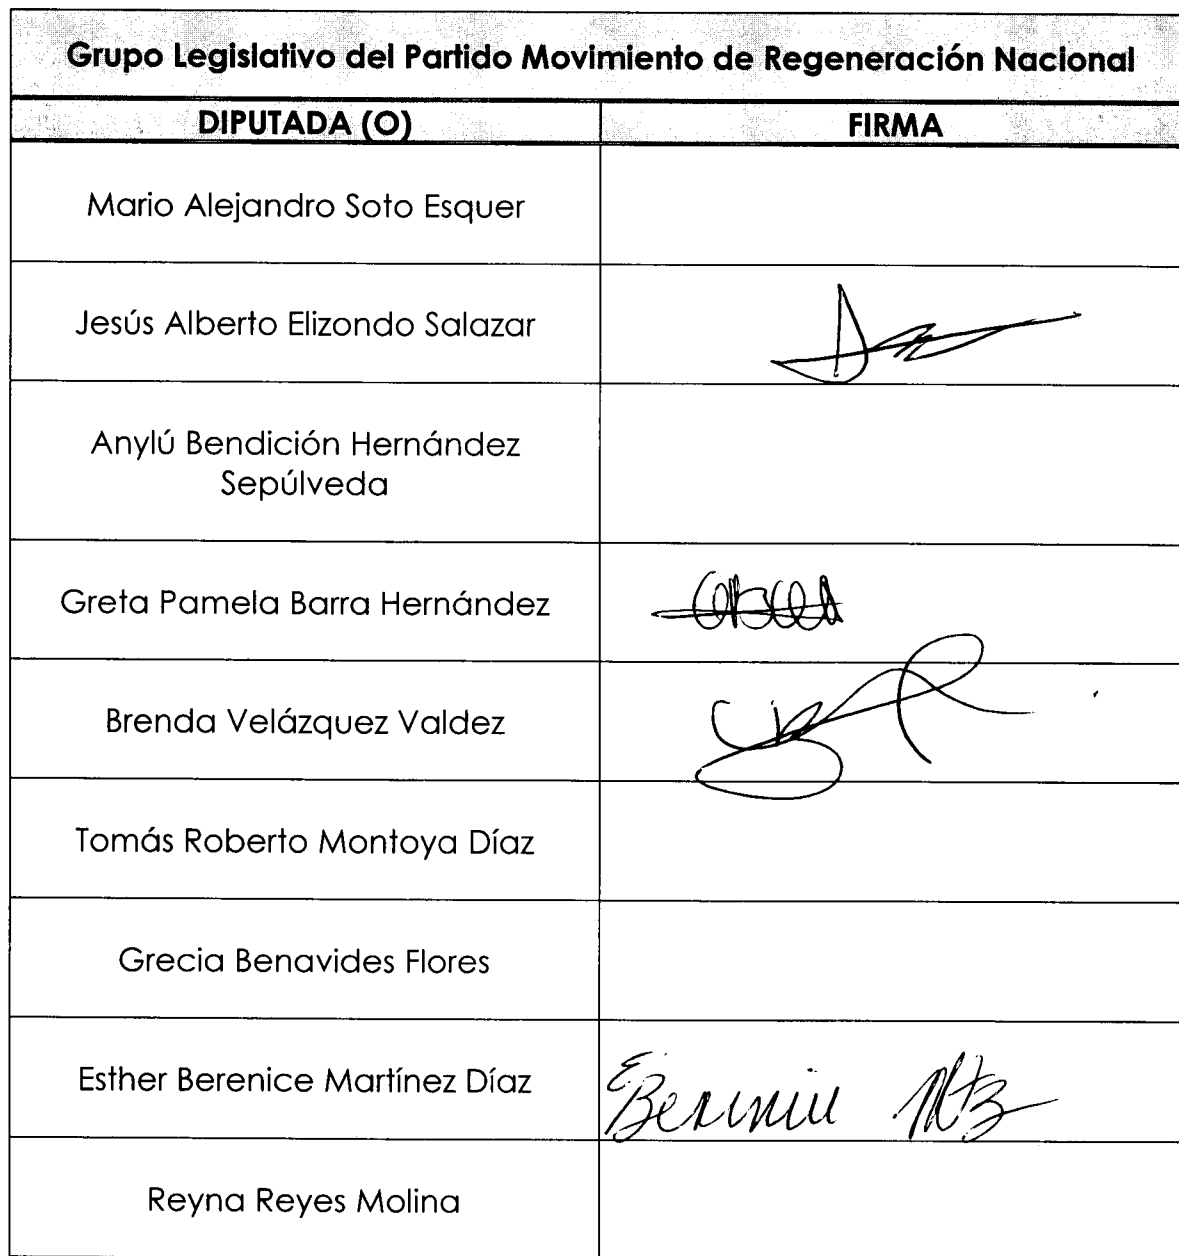 Grupo Legislativo del Partido Movimiento de Regeneración Nacional
DIPUTADA (O) FIRMA
Mario Alejandro Soto Esquer
Jesús Alberto Elizondo Salazar
Anylú Bendición Hernández
Sepúlveda
Greta Pamela Barra Hernández
Brenda Velázquez Valdez
Tomás Roberto Montoya Díaz
Grecia Benavides Flores
Esther Berenice Martínez Díaz
E Berenice Mtz
Reyna Reyes Molina